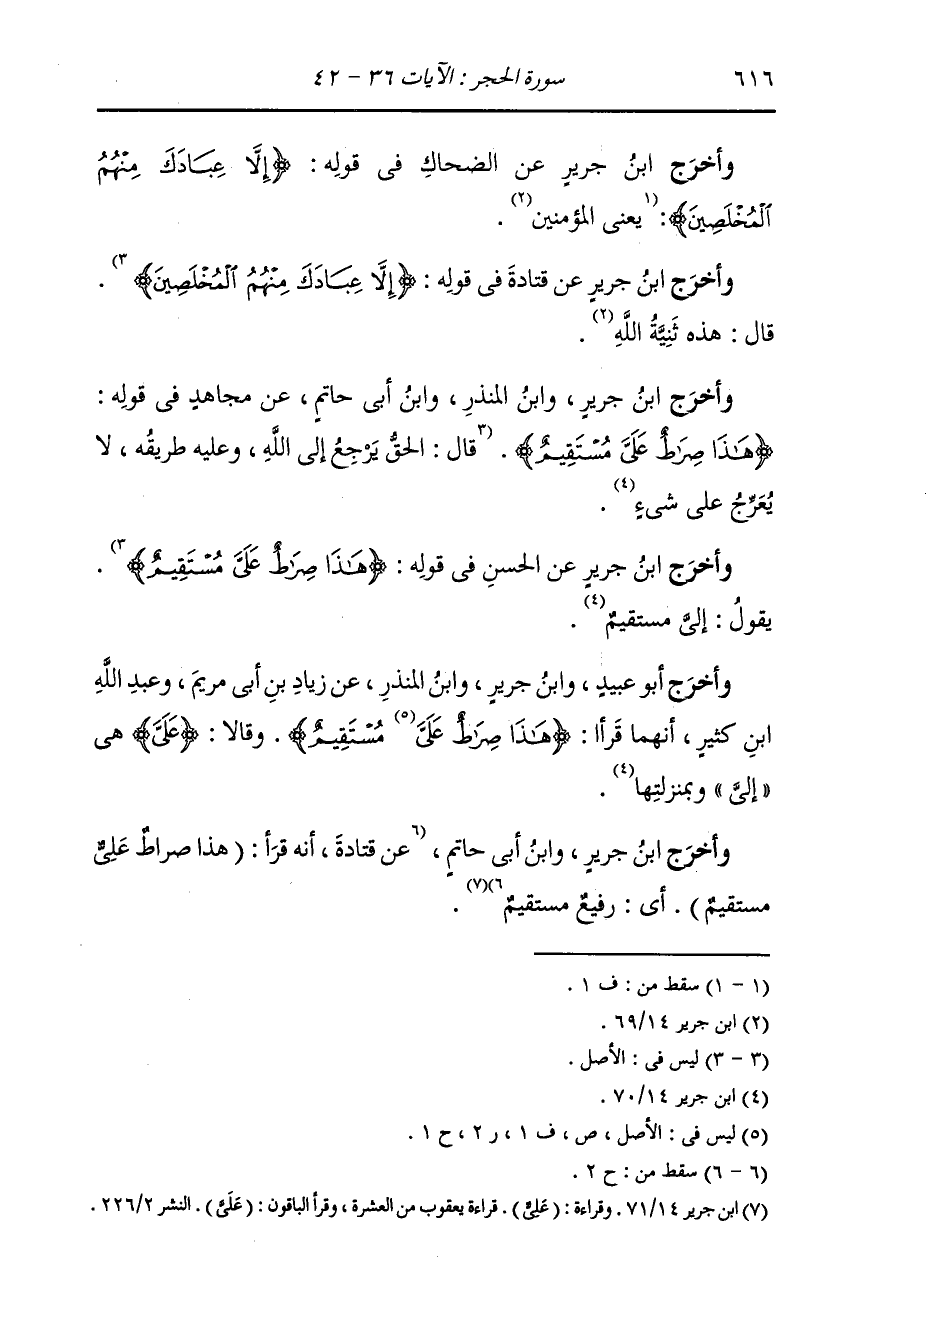 ٦١٦ سورة الحجر : الآيات ٣٦ - ٤٢
وأخرَج ابنُ جريرٍ عن الضحاكِ فى قولِه : ﴿إِلَّا عِبَادَكَ مِنْهُمُ
ٱلْمُخْلَصِينَ﴾: (١ يعنى المؤمنين(٢) .
وأخرَج ابنُ جريرٍ عن قتادةَ فى قولِه : ﴿إِلَّا عِبَادَكَ مِنْهُمُ ٱلْمُخْلَصِينَ﴾ ٣) .
قال : هذه ثَنِيَّةُ اللَّهِ(٢) .
وأخرَج ابنُ جريرٍ ، وابنُ المنذرِ ، وابنُ أبى حاتمٍ ، عن مجاهدٍ فى قولِه :
﴿هَـٰذَا صِرَٰطٌ عَلَىَّ مُسْتَقِيمٌ﴾ . (٣ قال : الحقُّ يَرْجِعُ إلى اللَّهِ ، وعليه طريقُه ، لا
يُعَرِّجُ على شىءٍ(٤) .
وأخرَج ابنُ جريرٍ عن الحسنِ فى قولِه : ﴿هَـٰذَا صِرَٰطٌ عَلَىَّ مُسْتَقِيمٌ﴾ ٣) .
يقولُ : إلىَّ مستقيمٌ(٤) .
وأخرَج أبو عبيدٍ ، وابنُ جريرٍ ، وابنُ المنذرِ ، عن زيادِ بنِ أبى مريمَ ، وعبدِ اللَّهِ
ابنِ كثيرٍ ، أنهما قَرأا : ﴿هَـٰذَا صِرَٰطٌ عَلَىَّ(٥) مُسْتَقِيمٌ﴾ . وقالا : ﴿عَلَىَّ﴾ هى
« إلىَّ » وبمنزلتِها(٤) .
وأخرَج ابنُ جريرٍ ، وابنُ أبى حاتمٍ ، (٦ عن قتادةَ ، أنه قرَأ : ( هذا صراطٌ عَلِىٌّ
مستقيمٌ ) . أى : رفيعٌ مستقيمٌ ٦)(٧) .
(١ - ١) سقط من : ف ١ .
(٢) ابن جرير ٦٩/١٤ .
(٣ - ٣) ليس فى : الأصل .
(٤) ابن جرير ٧٠/١٤ .
(٥) ليس فى : الأصل ، ص ، ف ١ ، ر ٢ ، ح ١ .
(٦ - ٦) سقط من : ح ٢ .
(٧) ابن جرير ٧١/١٤ . وقراءة : ( عَلِىٌّ ) . قراءة يعقوب من العشرة ، وقرأ الباقون : ( عَلَىَّ ) . النشر ٢٢٦/٢ .